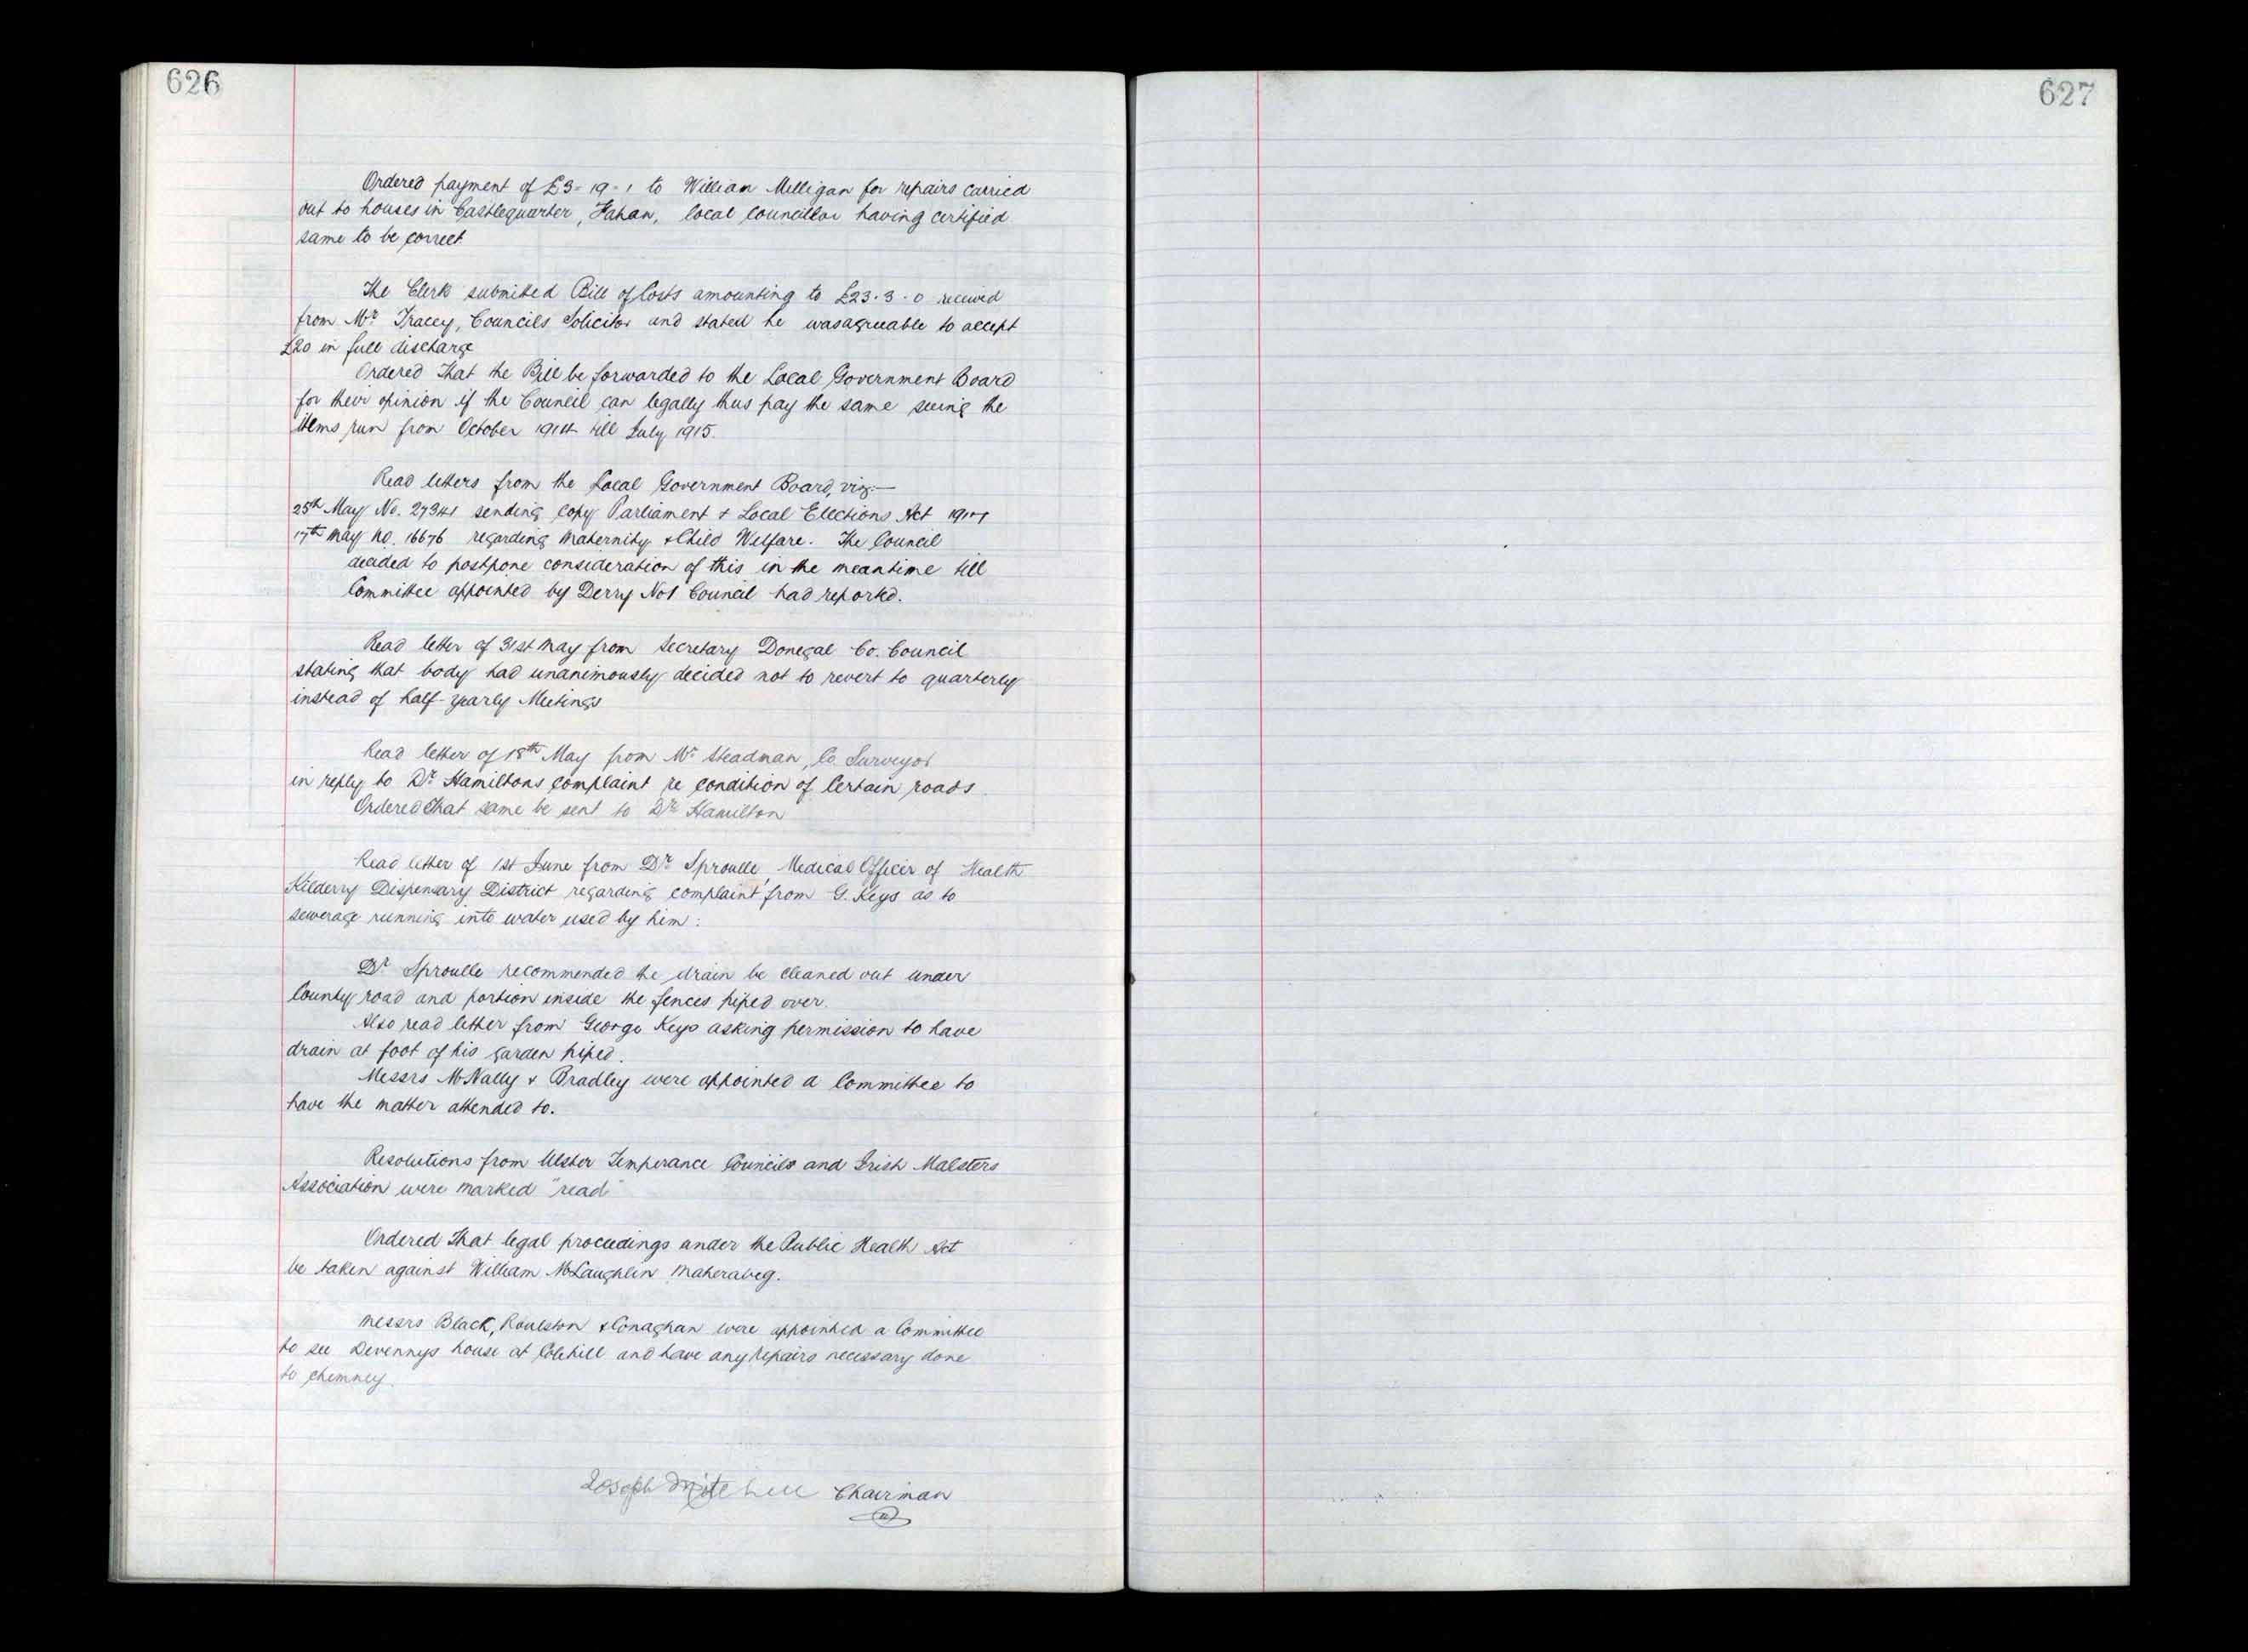 626
Ordered payment of £3-19-1 to William Milligan for repairs carried
out to houses in Castlequarter, Fahan, local councillor having certified
same to be correct
The Clerk submitted Bill of Costs amounting to £23.3.0 received
from Mr Tracey, Councils Solicitor and stated he was agreeable to accept
£20 in full discharge
Ordered That the Bill be forwarded to the Local Government Board
for their opinion if the Council can legally thus pay the same seeing the
items run from October 1914 till July 1915.
Read letters from the Local Government Board, viz:—
25th May No. 27341 sending copy Parliament & Local Elections Act 1917
17th May No. 16676 regarding Maternity & Child Welfare. The Council
decided to postpone consideration of this in the meantime till
Committee appointed by Derry No1 Council had reported.
Read letter of 31st May from Secretary Donegal Co. Council
stating that body had unanimously decided not to revert to quarterly
instead of half-yearly Meetings
Read letter of 18th May from Mr Steadman, Co Surveyor
in reply to Dr Hamiltons complaint re condition of Certain roads
Ordered That same be sent to Dr Hamilton
Read letter of 1st June from Dr Sproulle, Medical Officer of Health
Kilderry Dispensary District regarding complaint from G. Keys as to
sewerage running into water used by him.
Dr Sproulle recommended the drain be cleaned out under
County road and portion inside the fences piped over.
Also read letter from George Keys asking permission to have
drain at foot of his garden piped.
Messrs McNally & Bradley were appointed a Committee to
have the matter attended to.
Resolutions from Ulster Temperance Councils and Irish Malsters
Association were marked "read"
Ordered That legal proceedings under the Public Health Act
be taken against William McLaughlin Maherabeg.
Messrs Black, Roulston & Conaghan were appointed a Committee
to see Devennys house at Colehill and have any repairs necessary done
to chimney.
Joseph Mitchell Chairman
627